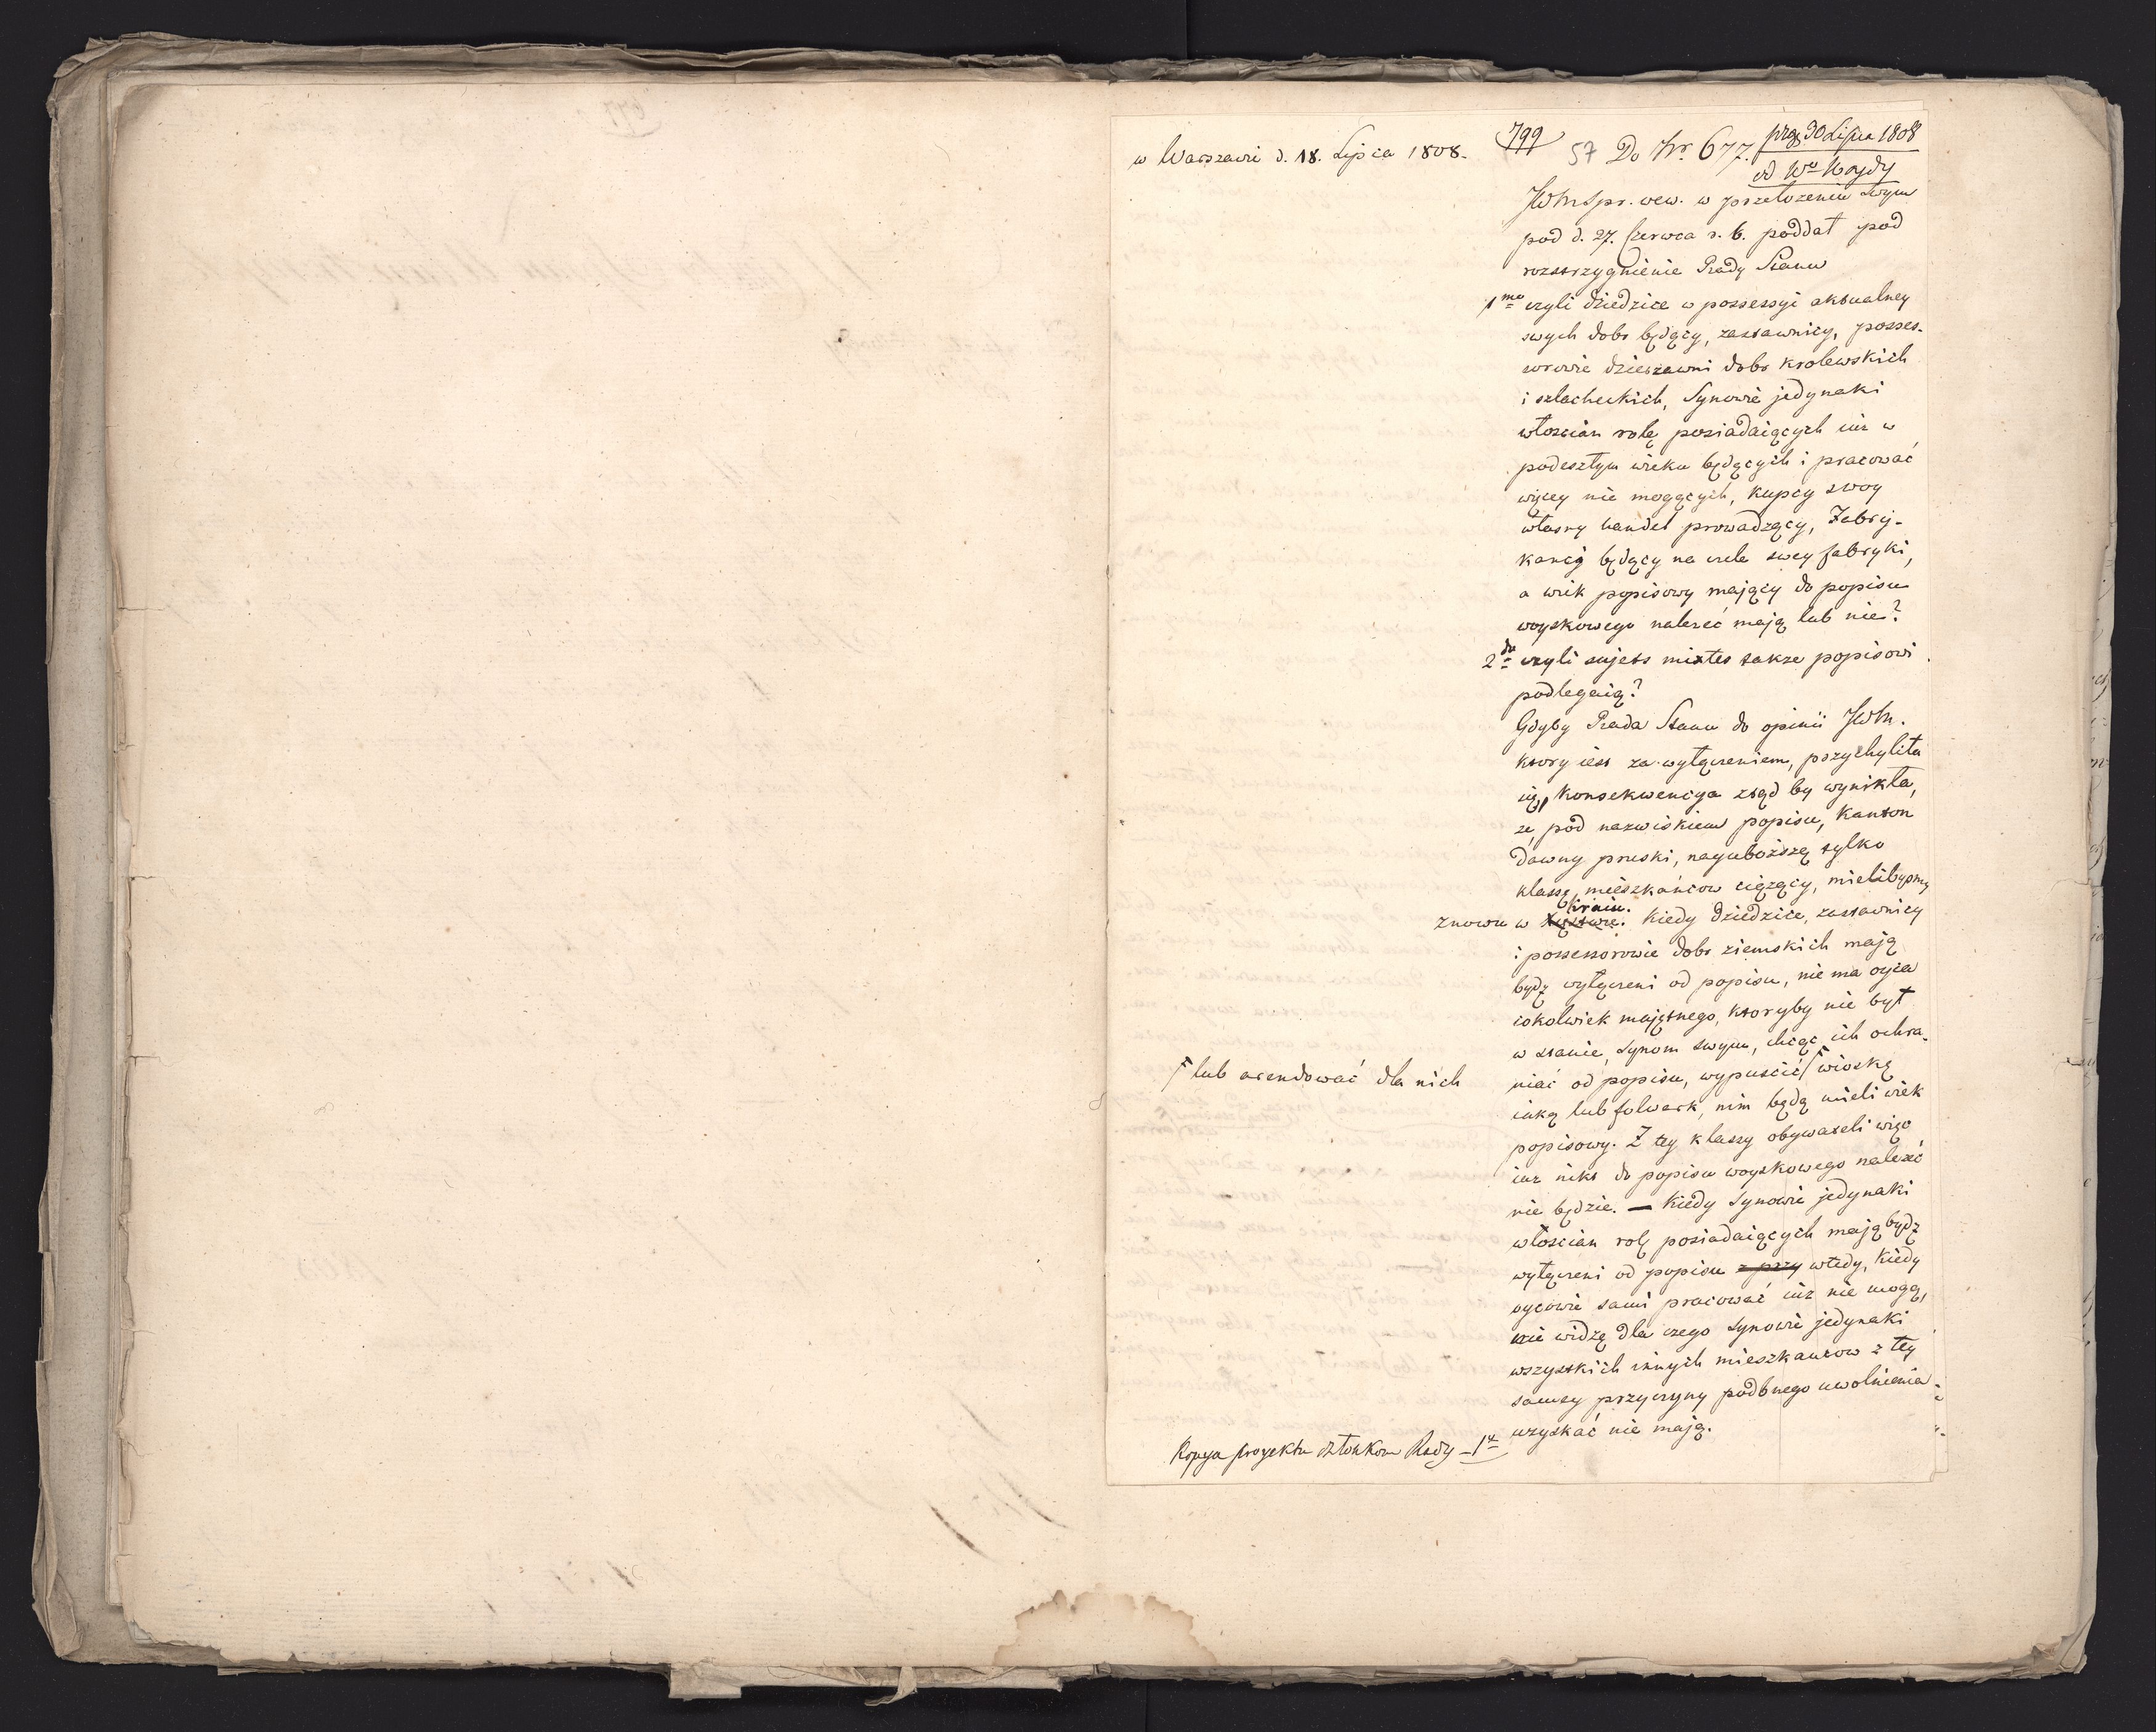 w Warszawie d. 18. Lipca 1808.
799
57 Do Nr. 677.
prez. 30 Lipca 1808
od Wo Woydy
JWMSpr. wew. w przełozeniu swym
pod d. 27. Czerwca r. b. poddał pod
rozstrzygnienie Rady Stanu
1mo czyli dziedzice w possessyi aktualney
swych dobr będący, zastawnicy, posses-
sorowie dzierzawni dobr krolewskich
i szlacheckich, Synowie jedynaki
włoscian rolę posiadaiących iuz w
podeszłym wieku będących i pracować
więcey nie mogących, kupcy swoy
własny handel prowadzący, Fabry-
kanci będący na czele swey fabryki,
a wiek popisowy mający do popisu
woyskowego należeć mają lub nie?
2do czyli sujets mixtes także popisowi
podlegaią?
Gdyby Rada Stanu do opinii JWM.
ktory iest za wyłączeniem, przychyliła
się, konsekwencya ztąd by wynikła,
ze, pod nazwiskiem popisu, kanton
dawny pruski, nayuboższą tylko
klassę mieszkańcow ciążący, mielibysmy
znowu w kraiu. Kiedy dziedzice, zastawnicy
i possessorowie dobr ziemskich mają
bydz wyłączeni od popisu, nie ma oyca
cokolwiek majętnego, ktoryby nie był
w stanie, synom swym, chcąc ich ochra-
niać od popisu, wypuscić ⌈ wioskę
⌈ lub arendować dla nich
iaką lub folwark, nim będą mieli wiek
popisowy. Z tey klassy obywateli więc
iuz nikt do popisu woyskowego należeć
nie będzie. — Kiedy synowie jedynaki
włoscian rolę posiadaiących mają bydz
wyłączeni od popisu z przy wtedy, kiedy
oycowie sami pracować iuz nie mogą,
nie widzę dla czego synowie jedynaki
wszystkich innych mieszkancow z tey
samey przyczyny podbnego uwolnienia
uzyskać nie mają.
Kopya proyektu członkom Rady